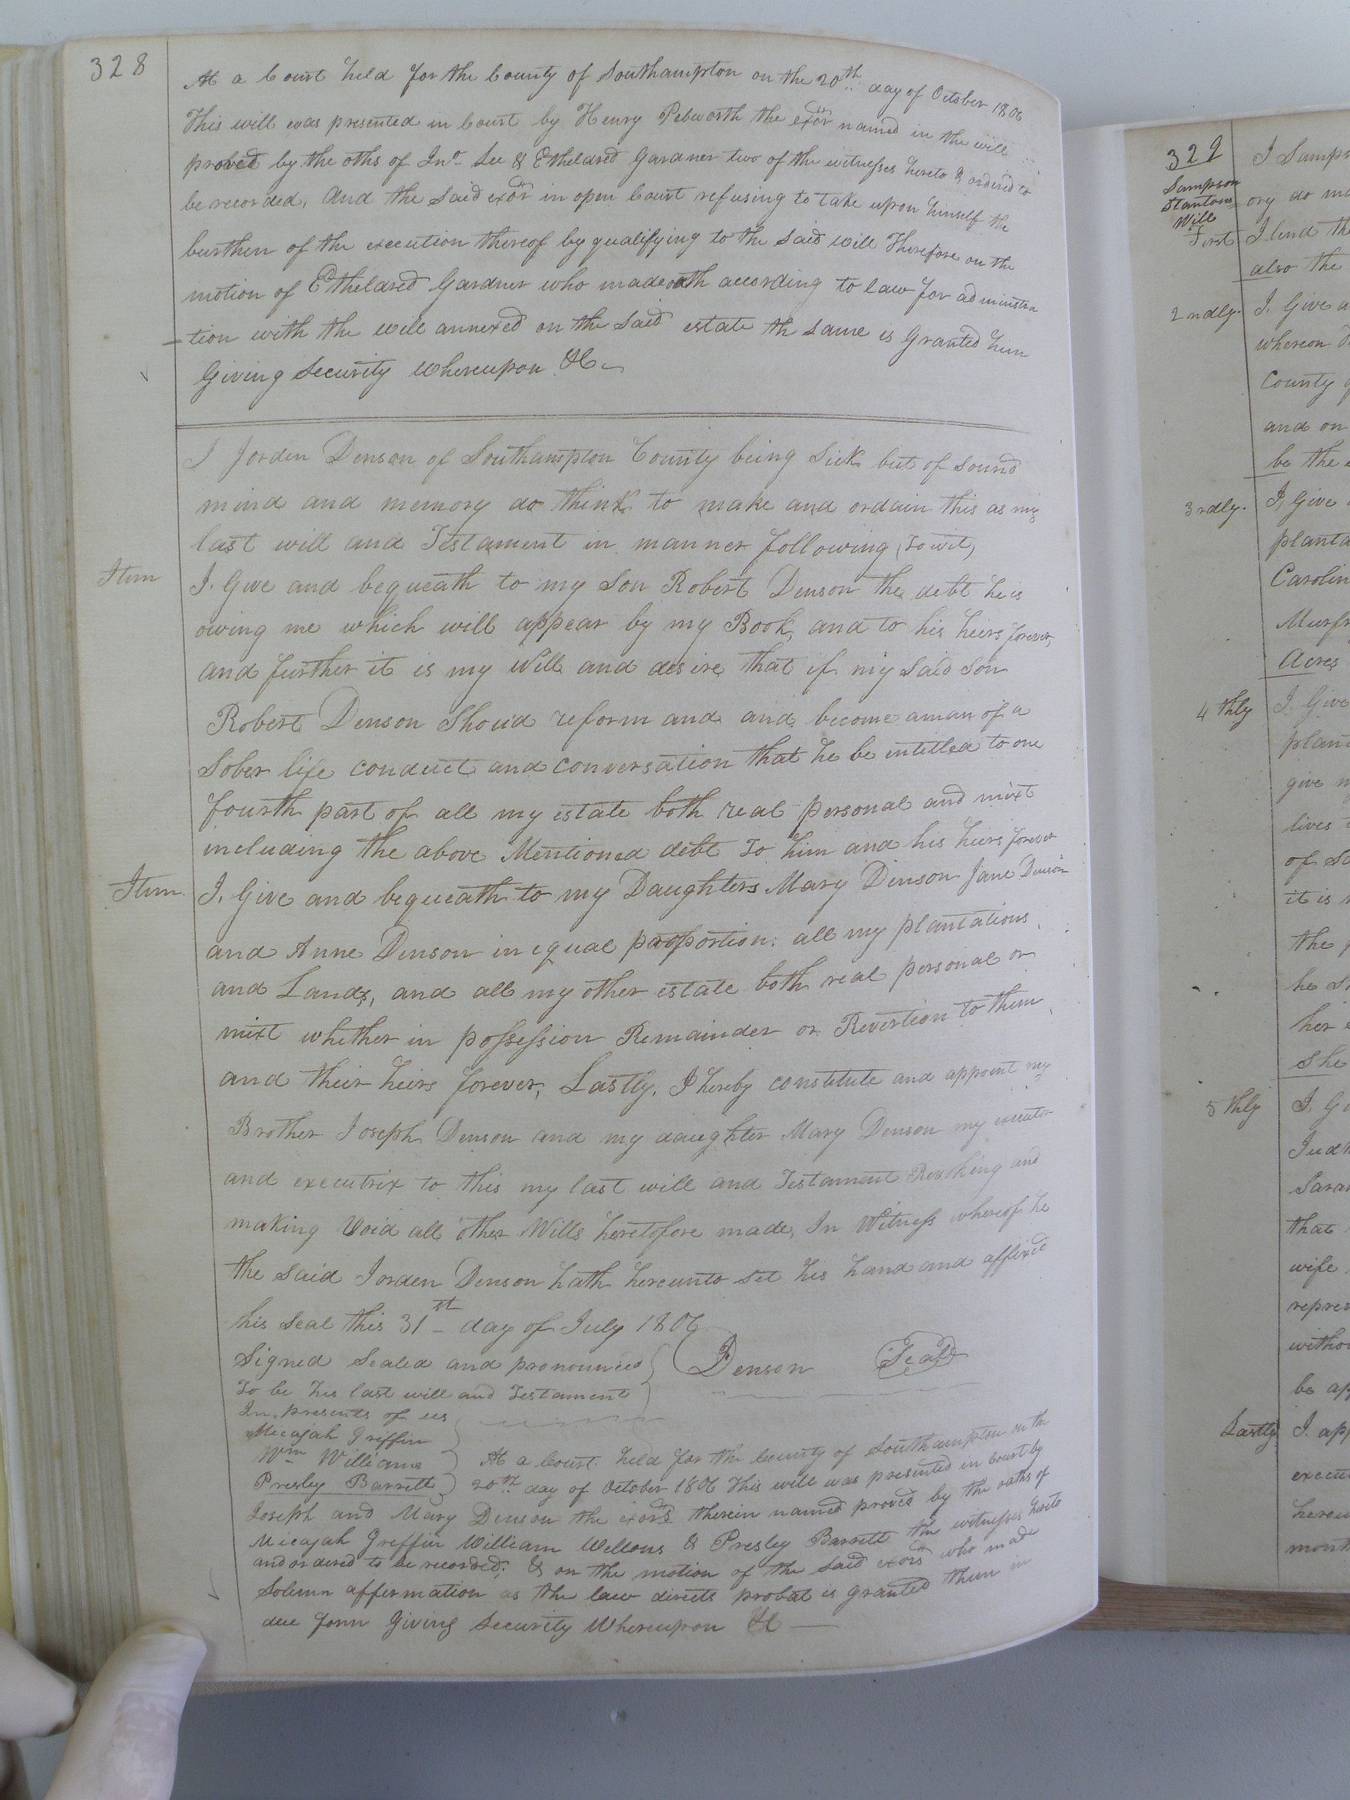 328
At a Court held for the County of Southampton on the 20th day of October 1806
This will was presented in Court by Henry Pebworth the exor named in the will
proved by the oths of Jno. Lee & Etheldred Gardner two of the witnesses hereto & ordered to
be recorded, And the said exor in open Court refusing to take upon himself the
burthen of the execution thereof by qualifying to the said will Therefore on the
motion of Etheldred Gardner who made oath according to law for administra
tion with the will annexed on the said estate th same is Granted him
Giving Security Whereupon &c
I Jorden Denson of Southampton County being Sick but of Sound
mind and memory do think to make and ordain this as my
last will and Testament in manner following, to wit,
Item I. Give and bequeath to my Son Robert Denson the debt he is
owing me which will appear by my Book, and to his heirs forever,
and further it is my Will and desire that if my Said Son
Robert Denson Shoud reform and and become a man of a
Sober life conduct and conversation that he be intitled to one
fourth part of all my estate both real personal and mixt
including the above Mentioned debt To him and his heirs forever
Item I. Give and bequeath to my Daughters Mary Denson Jane Denson
and Anne Denson in equal proportion: all my plantations
and Lands, and all my other estate both real personal or
mixt whether in possession Remainder or Revertion to them
and their heirs forever, Lastly, I hereby constitute and appoint my
Brother Joseph Denson and my daughter Mary Denson my executor
and executrix to this my last will and Testament Revoking and
making Void all other Wills heretofore made, In Witness whereof he
the said Jorden Denson hath hereunto Set his hand and affixed
his Seal this 31st day of July 1806
Signed Sealed and pronounced Denson Seal
To be his last will and Testament
In presents of us
Micajah Griffin
Wm Williams At a Court held for the County of Southampton on the
Presley Barrett 20th day of October 1806 This will was presented in Court by
Joseph and Mary Denson the exors therein named proved by the oaths of
Micajah Griffin William Wellons & Presley Barrett the witnesses hereto
and ordered to be recorded; & on the motion of the said exors who made
Solemn affermation as the law directs probat is granted them in
due form Giving Security Whereupon &c
329
Sampson
Stantons
Will
I Samps
ory do ma
First I lend th
also the
2ndly. I. Give a
whereon
County
and on
be the
3rdly. I, Give
planta
Carolin
Murfr
Acres
4thly I. Give
plan
give
lives
of
it is
the
he
her
She
5thly I. Gi
Jud
Sara
that
wife
repres
witho
be ap
Lastly I. app
execu
hereu
mont